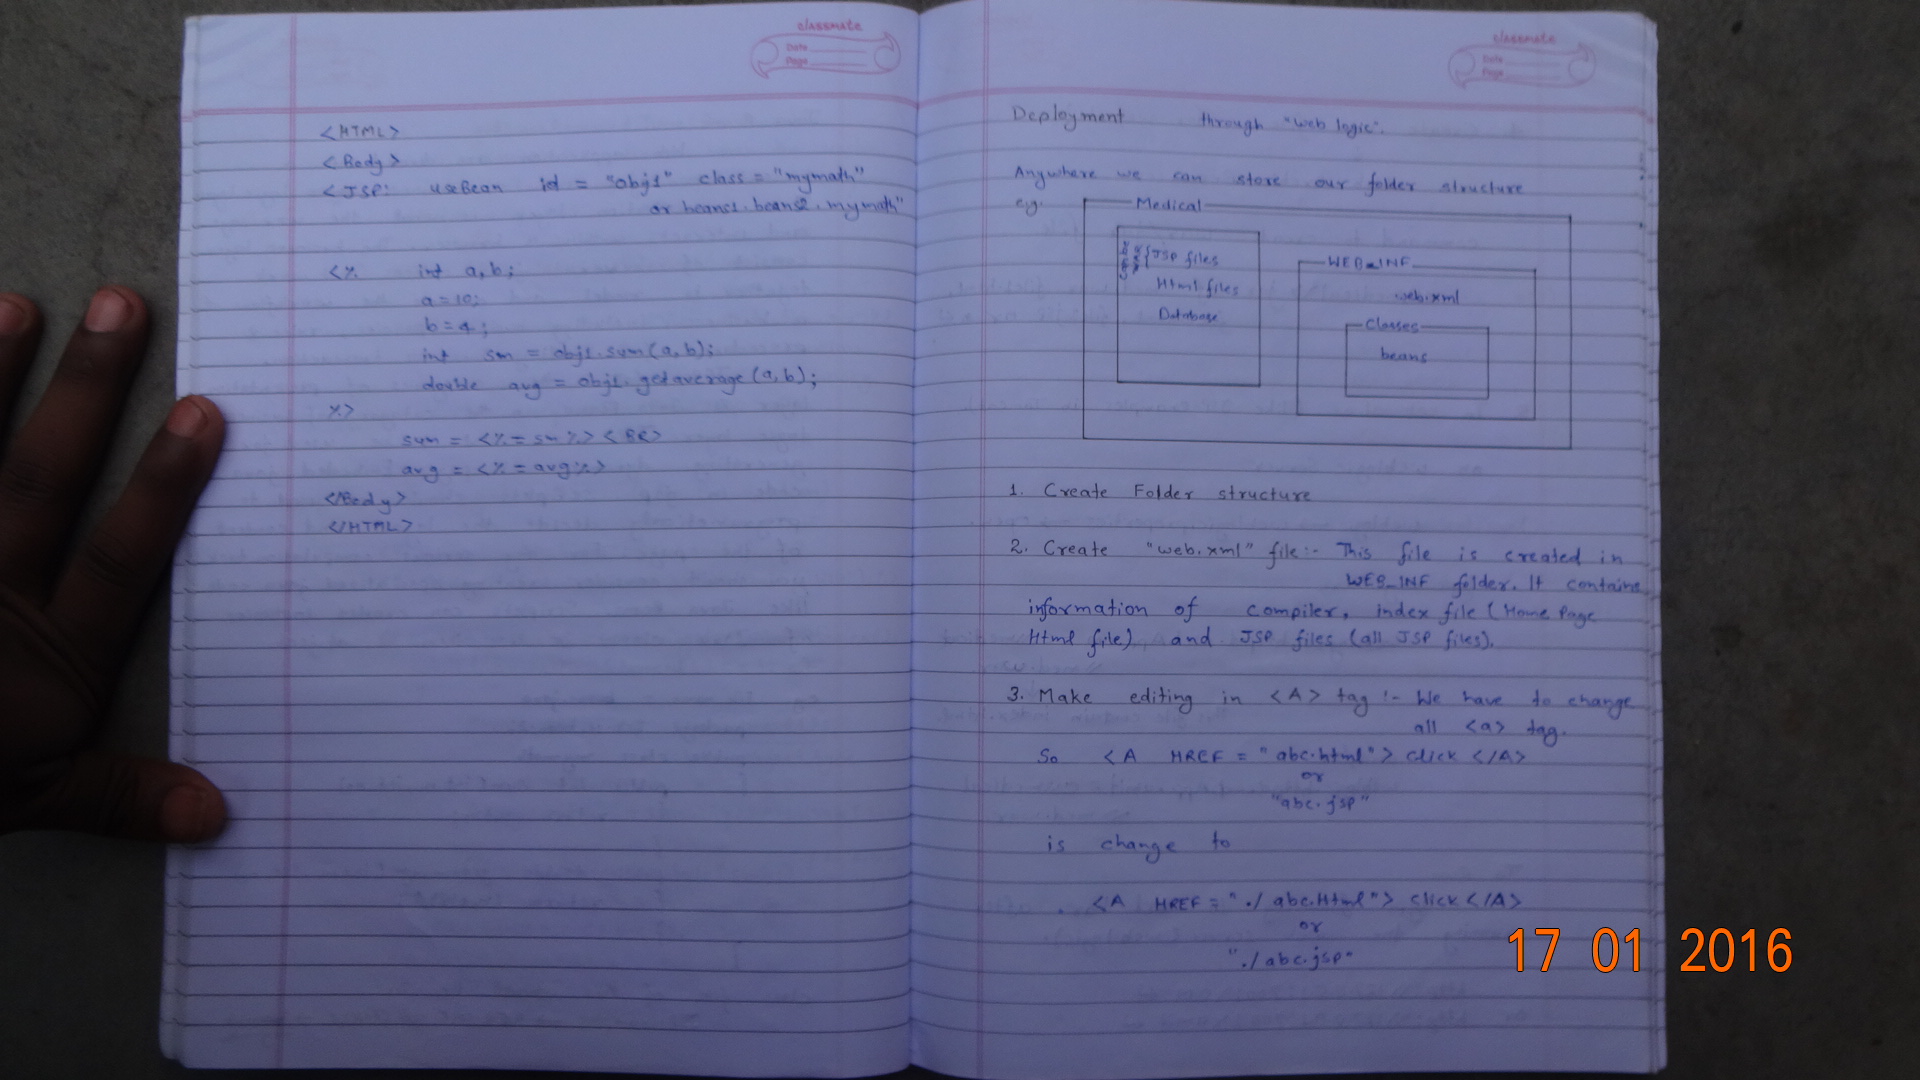 classmate
Date
Page
<HTML>
<Body>
<JSP: useBean id = "obj1" class = "mymath"
or beans1.beans2.mymath"
<% int a, b;
a=10;
b=4;
int sm = obj1.sum(a, b);
double avg = obj1.getaverage(a, b);
%>
sum = <%= sm %> <BR>
avg = <%= avg %>
</Body>
</HTML>
classmate
Date
Page
Deployment through "web logic".
Anywhere we can store our folder structure
e.g.
Medical
JSP files
Html files
Database
WEB_INF
web.xml
Classes
beans
1. Create Folder structure
2. Create "web.xml" file:- This file is created in
WEB_INF folder. It contains
information of compiler, index file (Home Page
Html file) and JSP files (all JSP files).
3. Make editing in <A> tag :- We have to change
all <a> tag.
So <A HREF = "abc.html"> click </A>
or
"abc.jsp"
is change to
<A HREF = "./abc.Html"> click </A>
or
"./abc.jsp"
17 01 2016